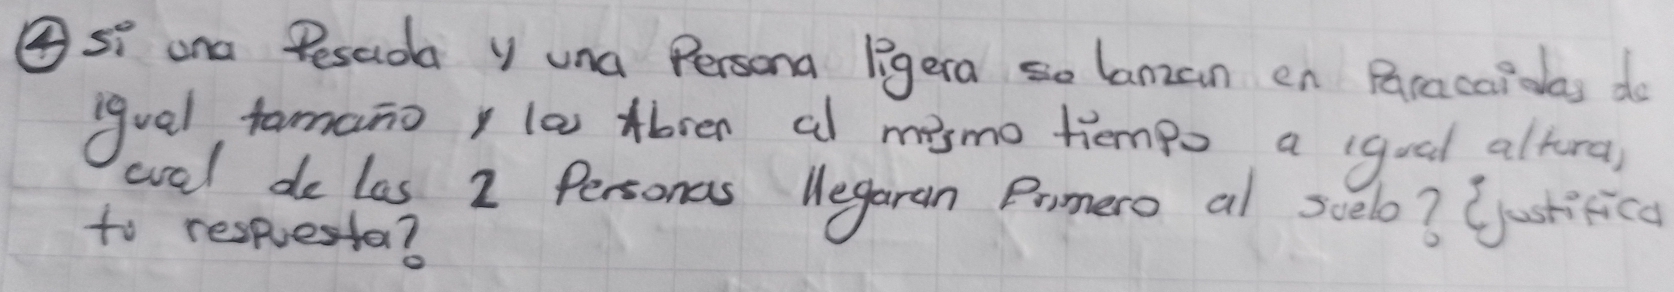 ④ si una Pesada y una Persona ligera se lanzan en Paracaidas de
igual tamaño y los Abren al mismo tiempo a igual altura,
cual de las 2 Personas llegaran Primero al suelo? ¿justifica
tu respuesta?